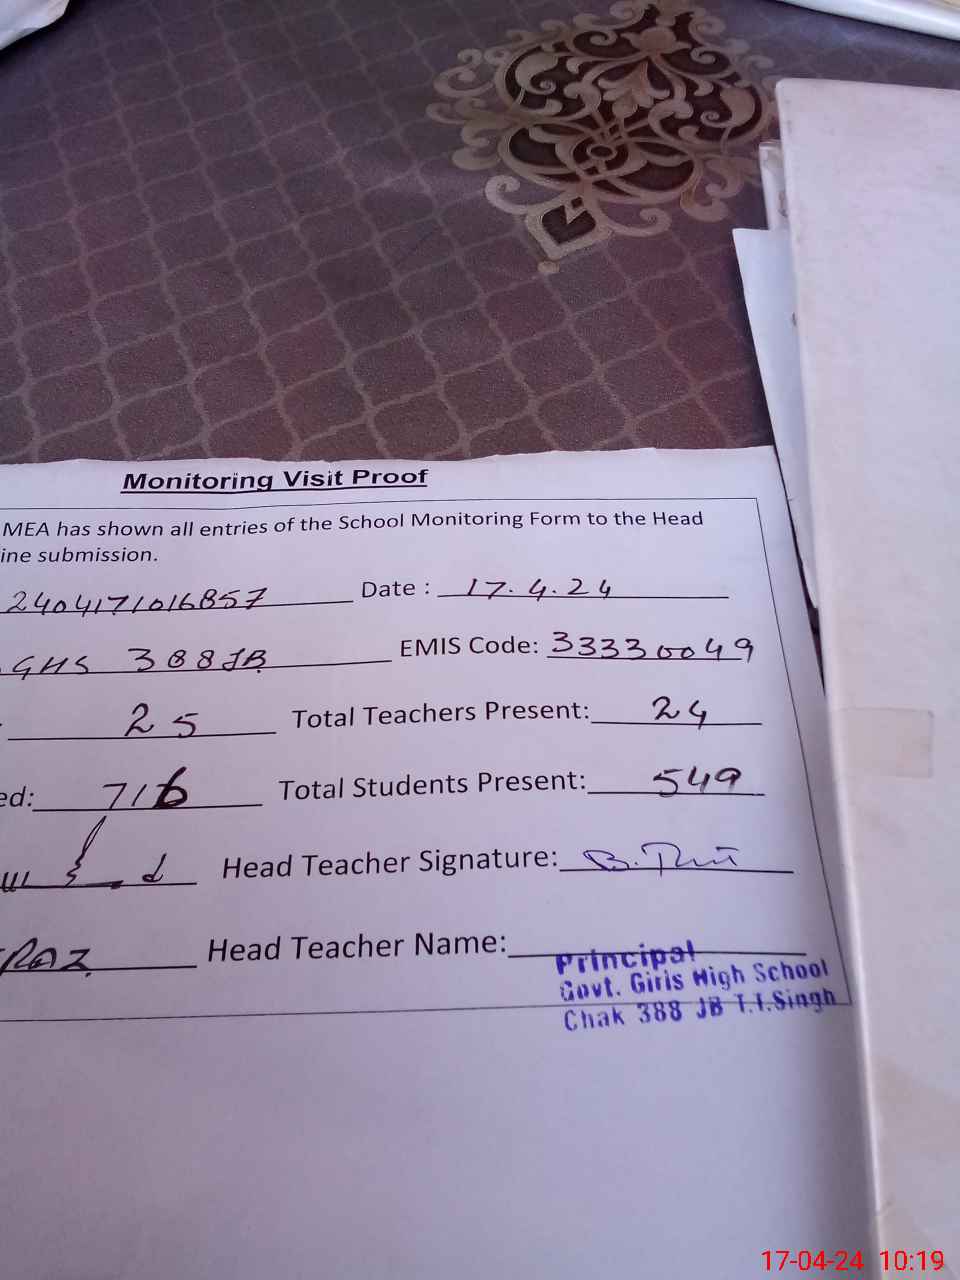 Monitoring Visit Proof
MEA has shown all entries of the School Monitoring Form to the Head
ine submission.
2404171016857 Date : 17.4.24
GHS 388JB EMIS Code: 33330049
25 Total Teachers Present: 24
ed: 716 Total Students Present: 549
Head Teacher Signature:
RAZ Head Teacher Name:
Principal
Govt. Girls High School
Chak 388 JB T.T.Singh
17-04-24 10:19